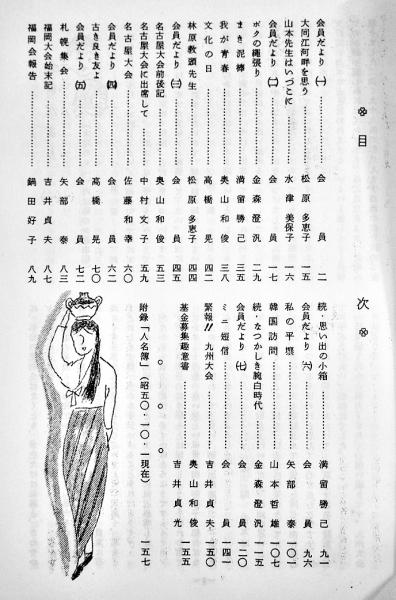 ※ 目 次 ※
会員だより (一) ………… 会員 二
大同江河畔を思う ………… 松原多恵子 一五
山本先生はいづこに ………… 水津美保子 一六
会員だより (二) ………… 会員 一七
ボクの縄張り ………… 金森澄汎 二九
まき泥棒 ………… 満留勝己 三五
我が青春 ………… 奥山和俊 三八
文化の日 ………… 高橋晃 四二
林原教頭先生 ………… 松原多恵子 四四
会員だより (三) ………… 会員 四五
名古屋大会前後記 ………… 奥山和俊 五三
名古屋大会に出席して ………… 中村文子 五九
名古屋大会 ………… 佐藤和幸 六〇
会員だより (四) ………… 会員 六二
古き良き友よ ………… 高橋晃 七〇
会員だより (五) ………… 会員 七二
札幌集会 ………… 矢部泰 八三
福岡大会始末記 ………… 吉井貞夫 八七
福岡会報告 ………… 鍋田好子 八九
続・思い出の小箱 ………… 満留勝己 九一
会員だより (六) ………… 会員 九六
私の平壌 ………… 矢部泰 一〇一
韓国訪問 ………… 山本哲雄 一〇七
続・なつかしき腕白時代 ………… 金森澄汎 一一五
会員だより (七) ………… 会員 一二〇
ミニ短信 ………… 会員 一四一
緊報!! 九州大会 ………… 吉井貞夫 一五〇
奥山和俊
基金募集趣意書 ………… 吉井貞光 一五五
○ ○ ○
附録「人名簿」(昭五〇・一〇・1現在) 一五七